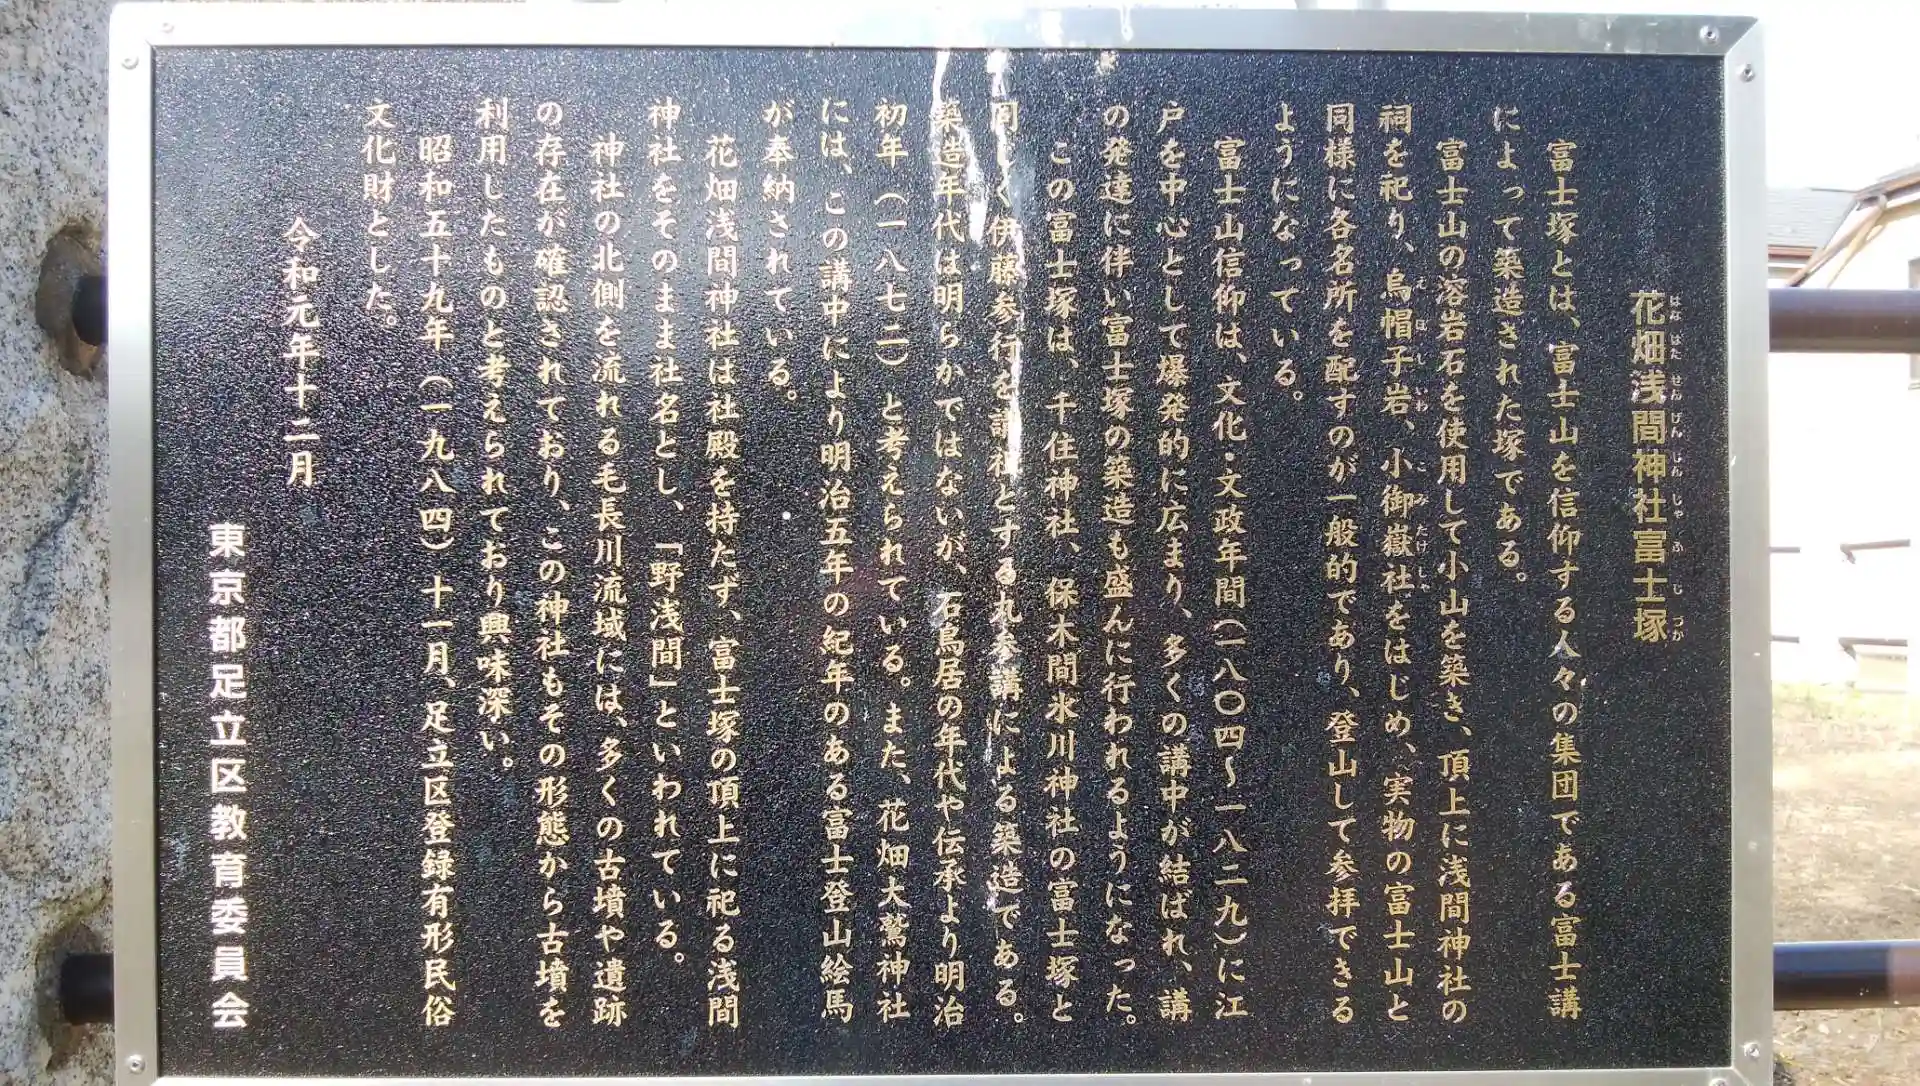 花畑浅間神社富士塚
はなはたせんげんじんじゃふじづか
富士塚とは、富士山を信仰する人々の集団である富士講
によって築造された塚である。
富士山の溶岩石を使用して小山を築き、頂上に浅間神社の
祠を祀り、烏帽子岩、小御嶽社をはじめ、実物の富士山と
えぼしいわ
こみたけしゃ
同様に各名所を配すのが一般的であり、登山して参拝できる
ようになっている。
富士山信仰は、文化・文政年間（一八〇四～一八二九）に江
戸を中心として爆発的に広まり、多くの講中が結ばれ、講
の発達に伴い富士塚の築造も盛んに行われるようになった。
この富士塚は、千住神社、保木間氷川神社の富士塚と
同じく伊藤参行を講祖とする丸参講による築造である。
築造年代は明らかではないが、石鳥居の年代や伝承より明治
初年（一八七二）と考えられている。また、花畑大鷲神社
には、この講中により明治五年の紀年のある富士登山絵馬
が奉納されている。
花畑浅間神社は社殿を持たず、富士塚の頂上に祀る浅間
神社をそのまま社名とし、「野浅間」といわれている。
神社の北側を流れる毛長川流域には、多くの古墳や遺跡
の存在が確認されており、この神社もその形態から古墳を
利用したものと考えられており興味深い。
昭和五十九年（一九八四）十一月、足立区登録有形民俗
文化財とした。
令和元年十二月
東京都足立区教育委員会